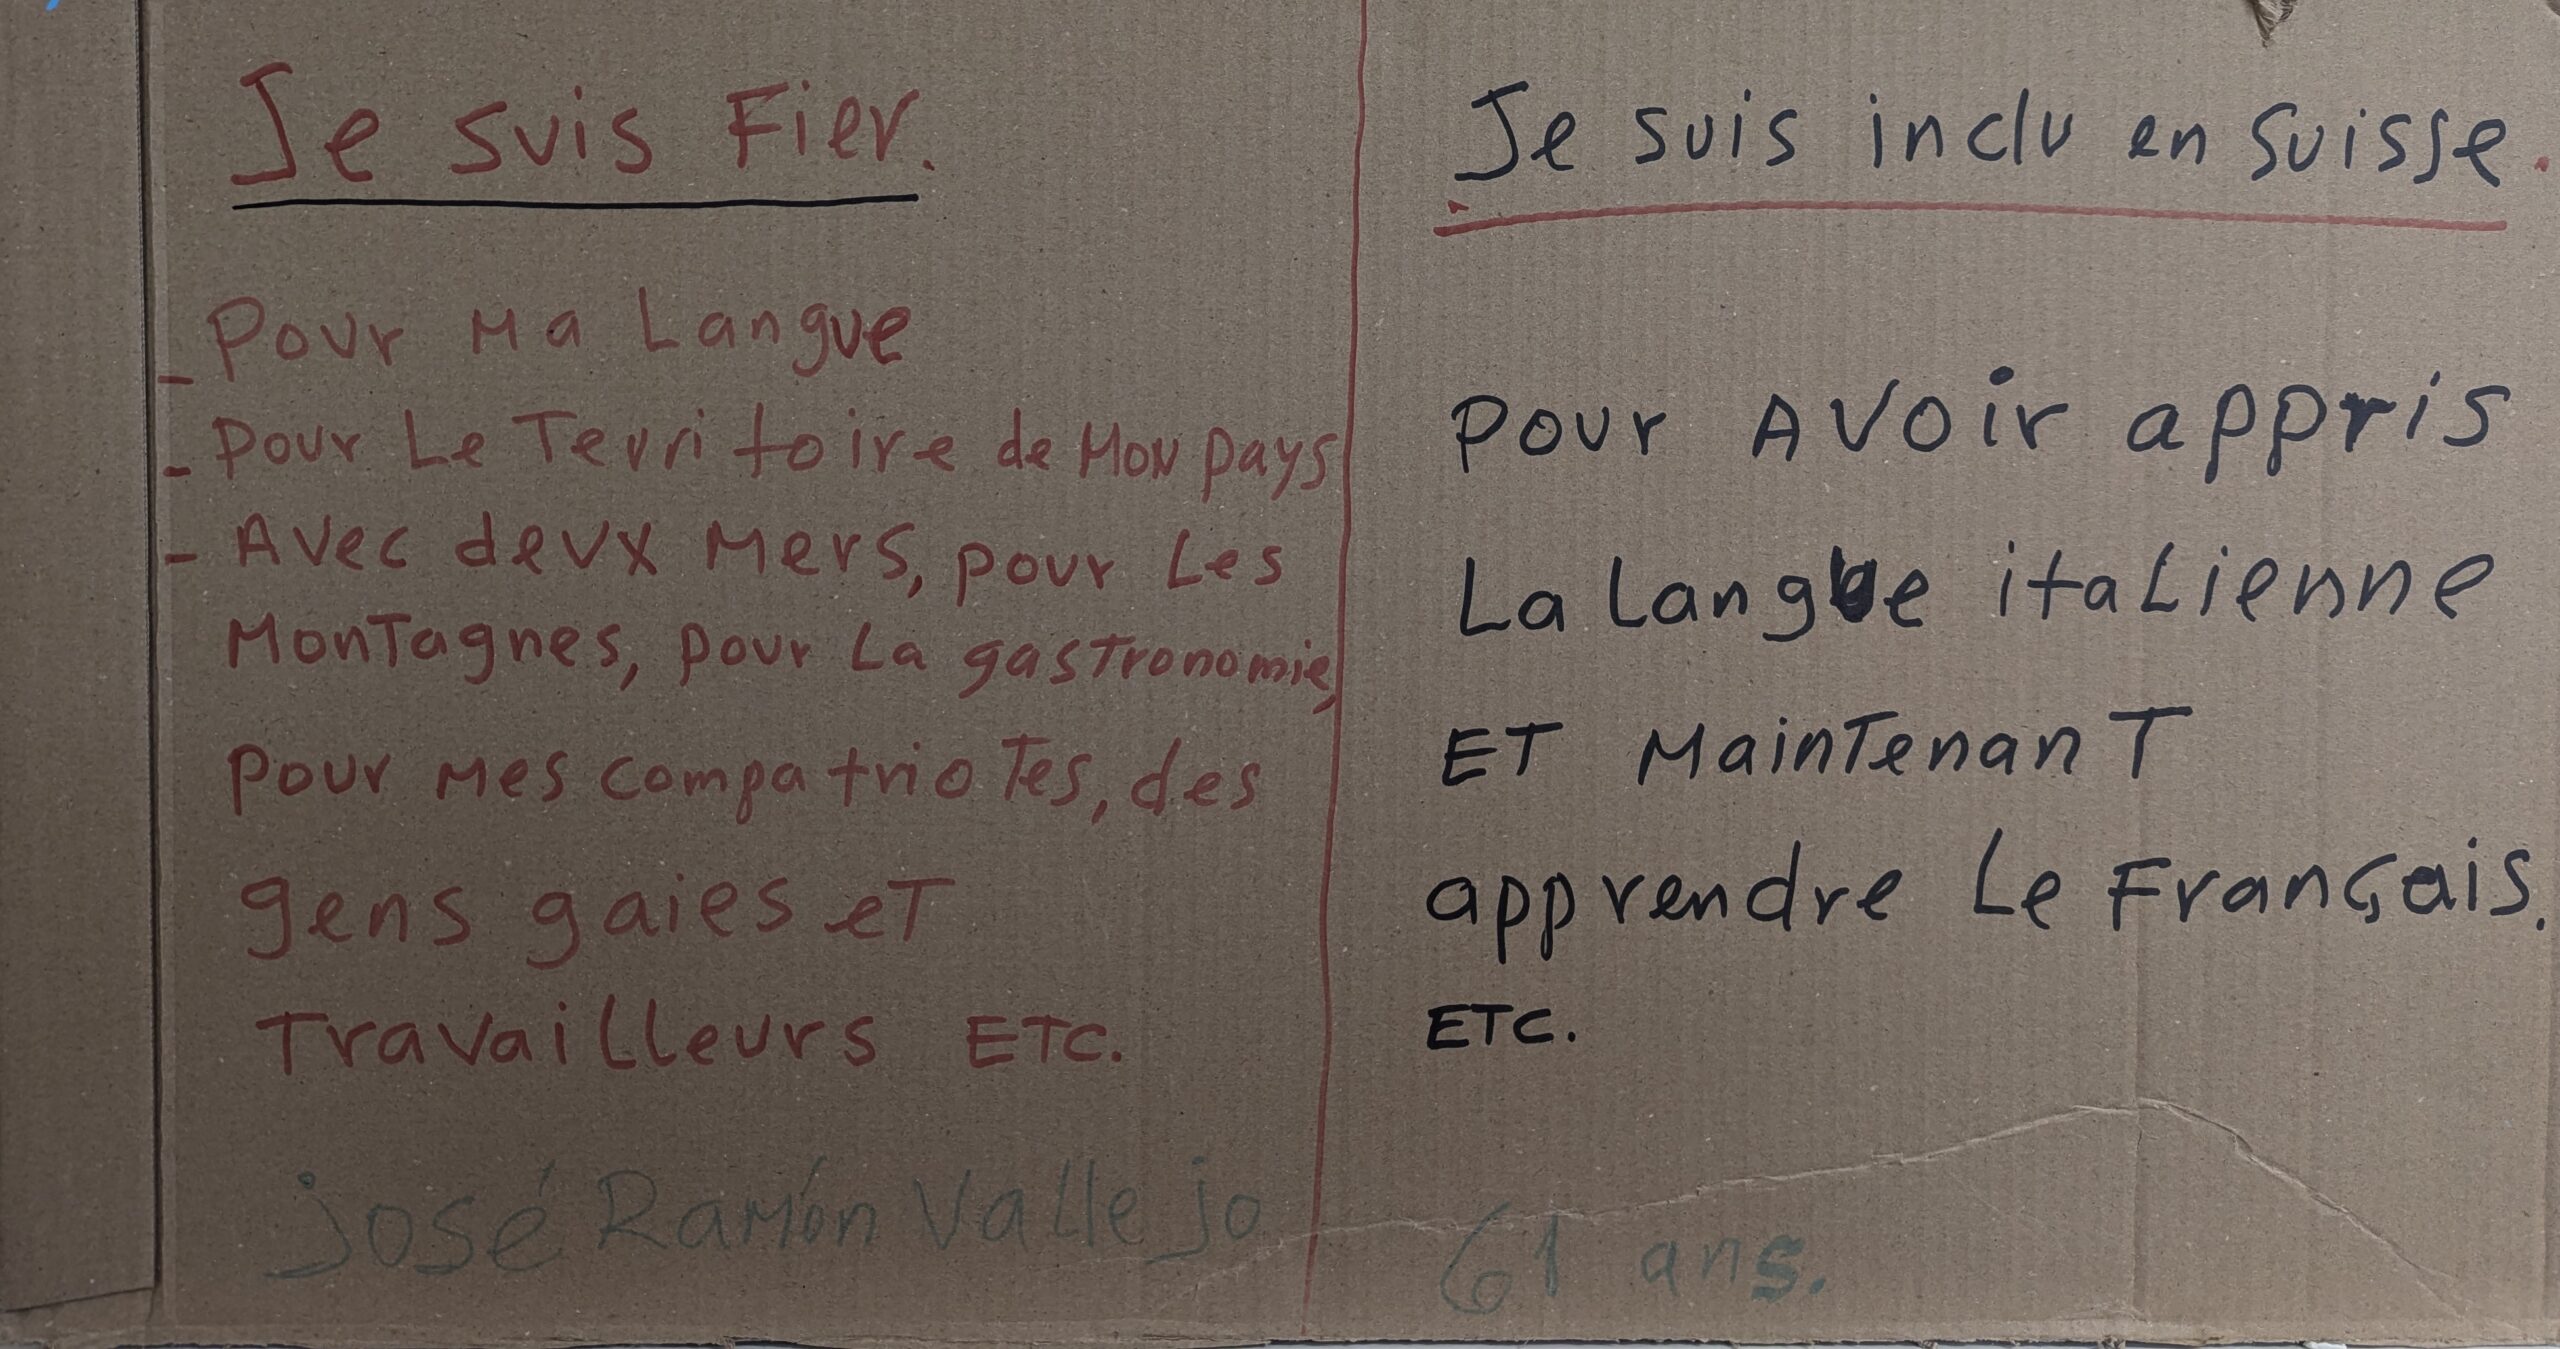 Je suis Fier.
- Pour Ma Langue
- Pour Le Territoire de Mon pays
- Avec deux Mers, pour Les
Montagnes, pour La gastronomie,
pour mes compatriotes, des
gens gaies et
Travailleurs ETC.
josé Ramón Vallejo
Je suis inclu en suisse.
Pour Avoir appris
La Langue itaLienne
ET MainTenanT
apprendre Le Français.
ETC.
61 ans.